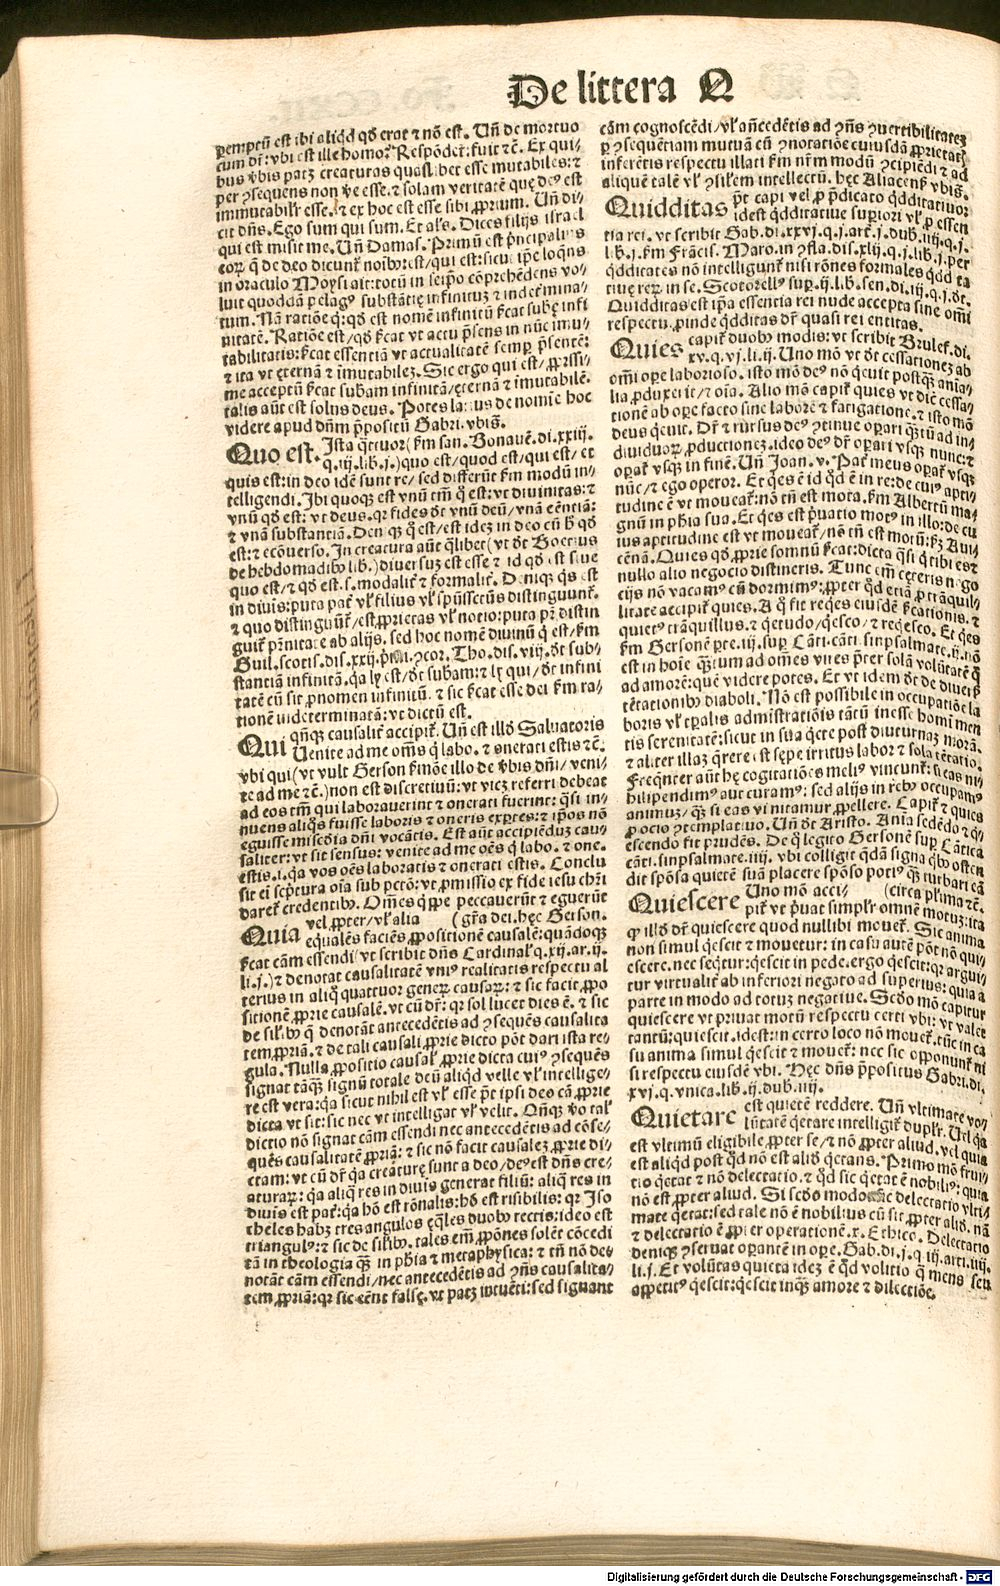 De littera Q
peremptū est ibi aliqd qd erat ⁊ nō est. Uñ de mortuo
cum dr̄: vbi est ille homo? Respōdet̄: fuit ⁊c̄. Ex qui-
bus v̄bis patꝫ creaturas quasi ībet esse mutabiles: ⁊
per ꝯsequens non v̄e esse. ⁊ solam veritatē quę deꝰ est
immutabilr̄ esse. ⁊ ex hoc est esse sibi ꝓprium. Uñ di-
cit dñs. Ego sum qui sum. Et als̄. Dices filijs israel
qui est misit me. Uñ Damas. Primū est p̄ncipaliꝰ
eoꝝ q̄ de deo dicunt̄ noībꝰ: est/qui est: sicut ip̄e loqn̄s
in oraculo Moysi ait: totū in seip̄o cōprehēdens vo-
luit quoddā pelagꝰ substātię infinituꝫ ⁊ indetermina-
tum. Nā ratiōe q: qd est nomē infinitū ſcat subę infi
nitatē. Ratiōe est/qd ſcat vt actu p̄sens in nūc imu-
tabilitatis: ſcat essentiā vt actualitatē semꝑ p̄sentē:
⁊ ita vt ęternā ⁊ imutabilē. Sic ergo qui est/ꝓprissi-
me acceptū ſcat subam infinitā/ęternā ⁊ īmutabilē.
talis aūt est solus deus. Potes latius de nomīe hoc
videre apud dn̄m p̄positū Gabri. vbi s̄.
Quo est. Ista qtuor (ſm san. Bonauē. di. xxiij.
q. iij. lib. j.) quo est/quod est/qui est/et
quis est: in deo idē sunt re/sed differūt ſm modū in-
telligendi. Ibi quoqꝫ est vnū tm̄ q est: vt diuinitas: ⁊
vnū qd est: vt deus. qꝛ fides dt̄ vnū deū/vnā eēntiā:
⁊ vnā substantiā. Den qꝫ q est/est idē in deo cū h qd
est: ⁊ ecōuerso. In creatura aūt qlibet (vt dt̄ Boetius
de hebdomadibꝰ lib.) diuersuꝫ est esse ⁊ id qd est siue
quo est/⁊ qd est. s. modalit̄ ⁊ formalit̄. Deniqꝫ qs est
in diuis: puta pat̄ vl̄ filius vl̄ sp̄ussctūs distinguunt̄.
⁊ quo distinguūt̄/est ꝓprietas vl̄ notio: puta pr̄ distin
guit̄ p̄nitate ab alijs. sed hoc nomē diuinū q est/ſm
Guil. scotis. dis. xxij. pm̄i. ⁊cor. Tho. dis. viij. dt̄ sub-
stantiā infinitā. qa lꝫ est/dt̄ subam: ⁊ lꝫ qui/dt̄ infini
tatē cū sit ꝓnomen infinitū. ⁊ sic ſcat esse dei ſm ra-
tionē indeterminatā: vt dictū est.
Qui qn̄qꝫ causalit̄ accipit̄. Uñ est illd Saluatoris
Uenite ad me om̄s q labo. ⁊ onerati estis ⁊c̄.
vbi qui (vt vult Gerson ſmōe illo de v̄bis dn̄i/veni-
te ad me ⁊c̄.) non est discretiuū: vt vicꝫ referri debeat
ad eos tm̄ qui laborauerint ⁊ onerati fuerint: qsi in-
nuens aliqs fuisse laboris ⁊ oneris expertes: ⁊ ip̄os nō
eguisse mīscdia dn̄i vocātis. Est aūt accipiēduꝫ cau-
saliter: vt sit sensus: venite ad me oēs q labo. ⁊ one.
estis. i. qa vos oēs laboratis ⁊ onerati estis. Conclu
sit ei sc̄ptura oīa sub pctō: vt ꝓmissio ex fide iesu chr̄i
daret̄ credentibꝰ. Om̄es qꝑpe peccauerūt ⁊ eguerūt
vel ꝓpter/vl̄ alia (gr̄a dei. hęc Gerson.
Quia equales faciēs ꝓpositionē causalē: quādoqꝫ
ſcat cām essendi (vt scribit dn̄s Cardinal̄ q. xij. ar. ij.
li. j.) ⁊ denotat causalitatē vniꝰ realitatis respectu al
terius in aliq quattuor generꝝ causaꝝ: ⁊ sic facit ꝓpo
sitionē ꝓprie causalē. vt cū dr̄: qꝛ sol lucet dies ē. ⁊ sic
de silibꝰ q denotāt antecedētis ad ꝯsequēs causalita
tem ꝓpriā. ⁊ de tali causali ꝓprie dicto pōt dari ista re-
gula. Nulla ꝓpositio causal̄ ꝓprie dicta cuiꝰ ꝯsequēs
signat tāqꝫ signū totale deū aliqd velle vl̄ intellige-
re est vera: qa sicut nihil est vl̄ esse pt̄ ipsi deo cā ꝓprie
dicta vt sit: sic nec vt intelligat vl̄ velit. Qn̄qꝫ v̄o tal̄
dictio nō signat cām essendi nec antecedētis ad cōse-
quēs causalitatē ꝓpriā: ⁊ sic nō facit causaleꝫ ꝓprie di-
ctam: vt cū dr̄ qa creaturę sunt a deo/deꝰ est dn̄s cre-
aturaꝝ: qa aliq res in diuis generat filiū: aliq res in
diuis est pat̄: qa hō est rōnalis: hō est risibilis: qꝛ Iso
theles habꝫ tres angulos ęqles duobꝰ rectis: ideo est
triangulꝰ: ⁊ sic de silibꝰ. tales em̄ ꝓpōnes solēt cōcedi
tā in theologia qꝫ in ph̄ia ⁊ metaphysica: ⁊ tn̄ nō de-
notāt cām essendi/nec antecedētis ad ꝯn̄s causalita-
tem ꝓpriā: qꝛ sic eēnt falsę. vt patꝫ intuēti: sed signant
cām cognoscēdi/vl̄ an̄cedētis ad ꝯn̄s ꝯuertibilitateꝫ
ꝑ ꝯsequētiam mutuā cū ꝯnotatiōe cuiusdā ꝓprietatꝭ
inferētis respectu illati ſm nr̄m modū ꝯcipiēdi ⁊ ad
aliquē talē vl̄ ꝯsilem intellectū. hęc Aliacenꝭ vbi s̄.
Quidditas pt̄ capi vel ꝓ p̄dicato qdditatiuo:
idest qdditatiue supriori vl̄ ꝓ essen
tia rei. vt scribit Gab. di. xxvj. q. j. art. j. dub. iiij. q. j.
lib. j. ſm Frācis. Maro. in ꝯfla. dis. xlij. q. j. lib. j. per
qdditates nō intelligunt̄ nisi rōnes formales qdd ta
tiuę reꝝ in se. Scotorell̄ suꝑ. ij. lib. sen. di. iij. q. j. dt̄.
Quidditas est ip̄a essentia rei nude accepta sine om̄i
respectu. ꝓinde qdditas dr̄ quasi rei entitas.
Quies capit̄ duobꝰ modis: vt scribit Brulef. di.
xv. q. vj. li. ij. Uno mō vt dt̄ cessationeꝫ ab
om̄i oꝑe laborioso. isto mō deꝰ nō qeuit postqꝫ anīa-
lia ꝓduxerit/⁊ oīa. Alio mō capit̄ quies vt dic̄ cessa-
tionē ab oꝑe facto sine labore ⁊ fatigatione. ⁊ isto mō
deus qeuit. Dr̄ ⁊ rursus deꝰ ꝯtinue oꝑari qꝫtū ad in-
diuiduoꝝ ꝓductioneꝫ. ideo deꝰ dr̄ oꝑari vsqꝫ nunc: ⁊
oꝑat̄ vsqꝫ in finē. Uñ Joan. v. Pat̄ meus oꝑat̄ vsqꝫ
nūc/⁊ ego operor. Et qes ē id qd ē in re: de cuiꝰ apti-
tudine ē vt moueat̄: nō tn̄ est mota. ſm Albertū ma-
gnū in ph̄ia sua. Et qes est p̄uatio motꝰ in illo: de cu
ius aptitudine est vt moueat̄/nō tn̄ est motū: ſꝫ Aui-
cēnā. Quies qd ꝓprie somnū ſcat: dicta qsi qtibi est
nullo alio negocio distineris. Tunc em̄ ceteris nego
cijs nō vacamꝰ cū dormimꝰ: ꝓpter qd etiā ꝓ trāquil-
litate accipit̄ quies. A q fit reqes eiusdē ſcationis. ⁊
quietꝰ trāquillus. ⁊ qetudo/qesco/⁊ reqesco. Et qes
ſm Gersonē ꝑte. iij. suꝑ Cāti. cāti. sinpsalmate. ij. nō
est in hoīe qꝫtum ad omēs vires p̄ter solā volūtatē q
ad amorē: quē videre potes. Et vt idem dt̄ de diuersꝭ
tētationibꝰ diaboli. Nō est possibile in occupatiōe la
boris vl̄ tꝑalis admīstratiōis tātū inesse homī men
tis serenitatē: sicut in sua qete post diuturnaꝫ morā.
⁊ aliter illaꝫ qrere est sępe irritus labor ⁊ sola tētatio.
Freqn̄ter aūt hę cogitatiōes meliꝰ vincunt̄: si eas ni-
hilipendimꝰ aut curamꝰ: sed alijs in rebꝰ occupamꝰ
animuꝫ/qꝫ si eas vi nitamur ꝓpellere. Capit̄ ⁊ quies
ꝓ ocio ⁊templatiuo. Uñ dt̄ Aristo. Anīa sedēdo ⁊ q-
escendo fit prudēs. De q legito Gersonē suꝑ Cātica
cāti. sinpsalmate. iiij. vbi colligit qdā signa qbꝰ osten
dit spōsa quietē suā placere spōso potiꝰ qꝫ turbari cā
Quiescere Uno mō acci- (circa plīma ⁊c̄.
pit̄ vt p̄uat simplr̄ omnē motuꝫ: ita
ꝙ illd dr̄ quiescere quod nullibi mouet̄. Sic anima
non simul qescit ⁊ mouetur: in casu autē pōt nō qui-
escere. nec seqtur: qescit in pede. ergo qescit: qꝛ argui-
tur virtualit̄ ab inferiori negato ad superius: quia a
parte in modo ad totuꝫ negatiue. Scdo mō capitur
quiescere vt priuat motū respectu certi vbi: vt valet
tantū: quiescit. idest: in certo loco nō mouet̄. tūc in ca
su anima simul qescit ⁊ mouet̄: nec sic opponunt̄ ni
si respectu eiusdē vbi. Hęc dn̄s p̄positus Gabri. di.
xvj. q. vnica. lib. ij. dub. iiij.
Quietare est quietē reddere. Uñ vltimate vo-
lūtatē qetare intelligit̄ duplr̄. Uel qa
est vltimū eligibile ꝓpter se/⁊ nō ꝓpter aliud. vel quia
est aliqd post qd nō est aliō qetans. Primo mō frui-
tio qetat ⁊ nō delectatio. ⁊ qd sic qetat ē nobiliꝰ: quia
nō est ꝓpter aliud. Si scdo modo sic delectatio vlti-
mate qetat: sed tale nō ē nobilius cū sit ꝓpter aliō. nā
⁊ delectatio ē ꝓpter operationē. x. Ethico. Delectatio
deniqꝫ ꝯseruat oꝑantē in oꝑe. Gab. di. j. q. iij. arti. iij.
li. j. Et volūtas quieta ideꝫ ē qd volitio q mens seu
appetitꝰ qescit: qescit inqꝫ amore ⁊ dilectiōe.
Digitalisierung gefördert durch die Deutsche Forschungsgemeinschaft - DFG